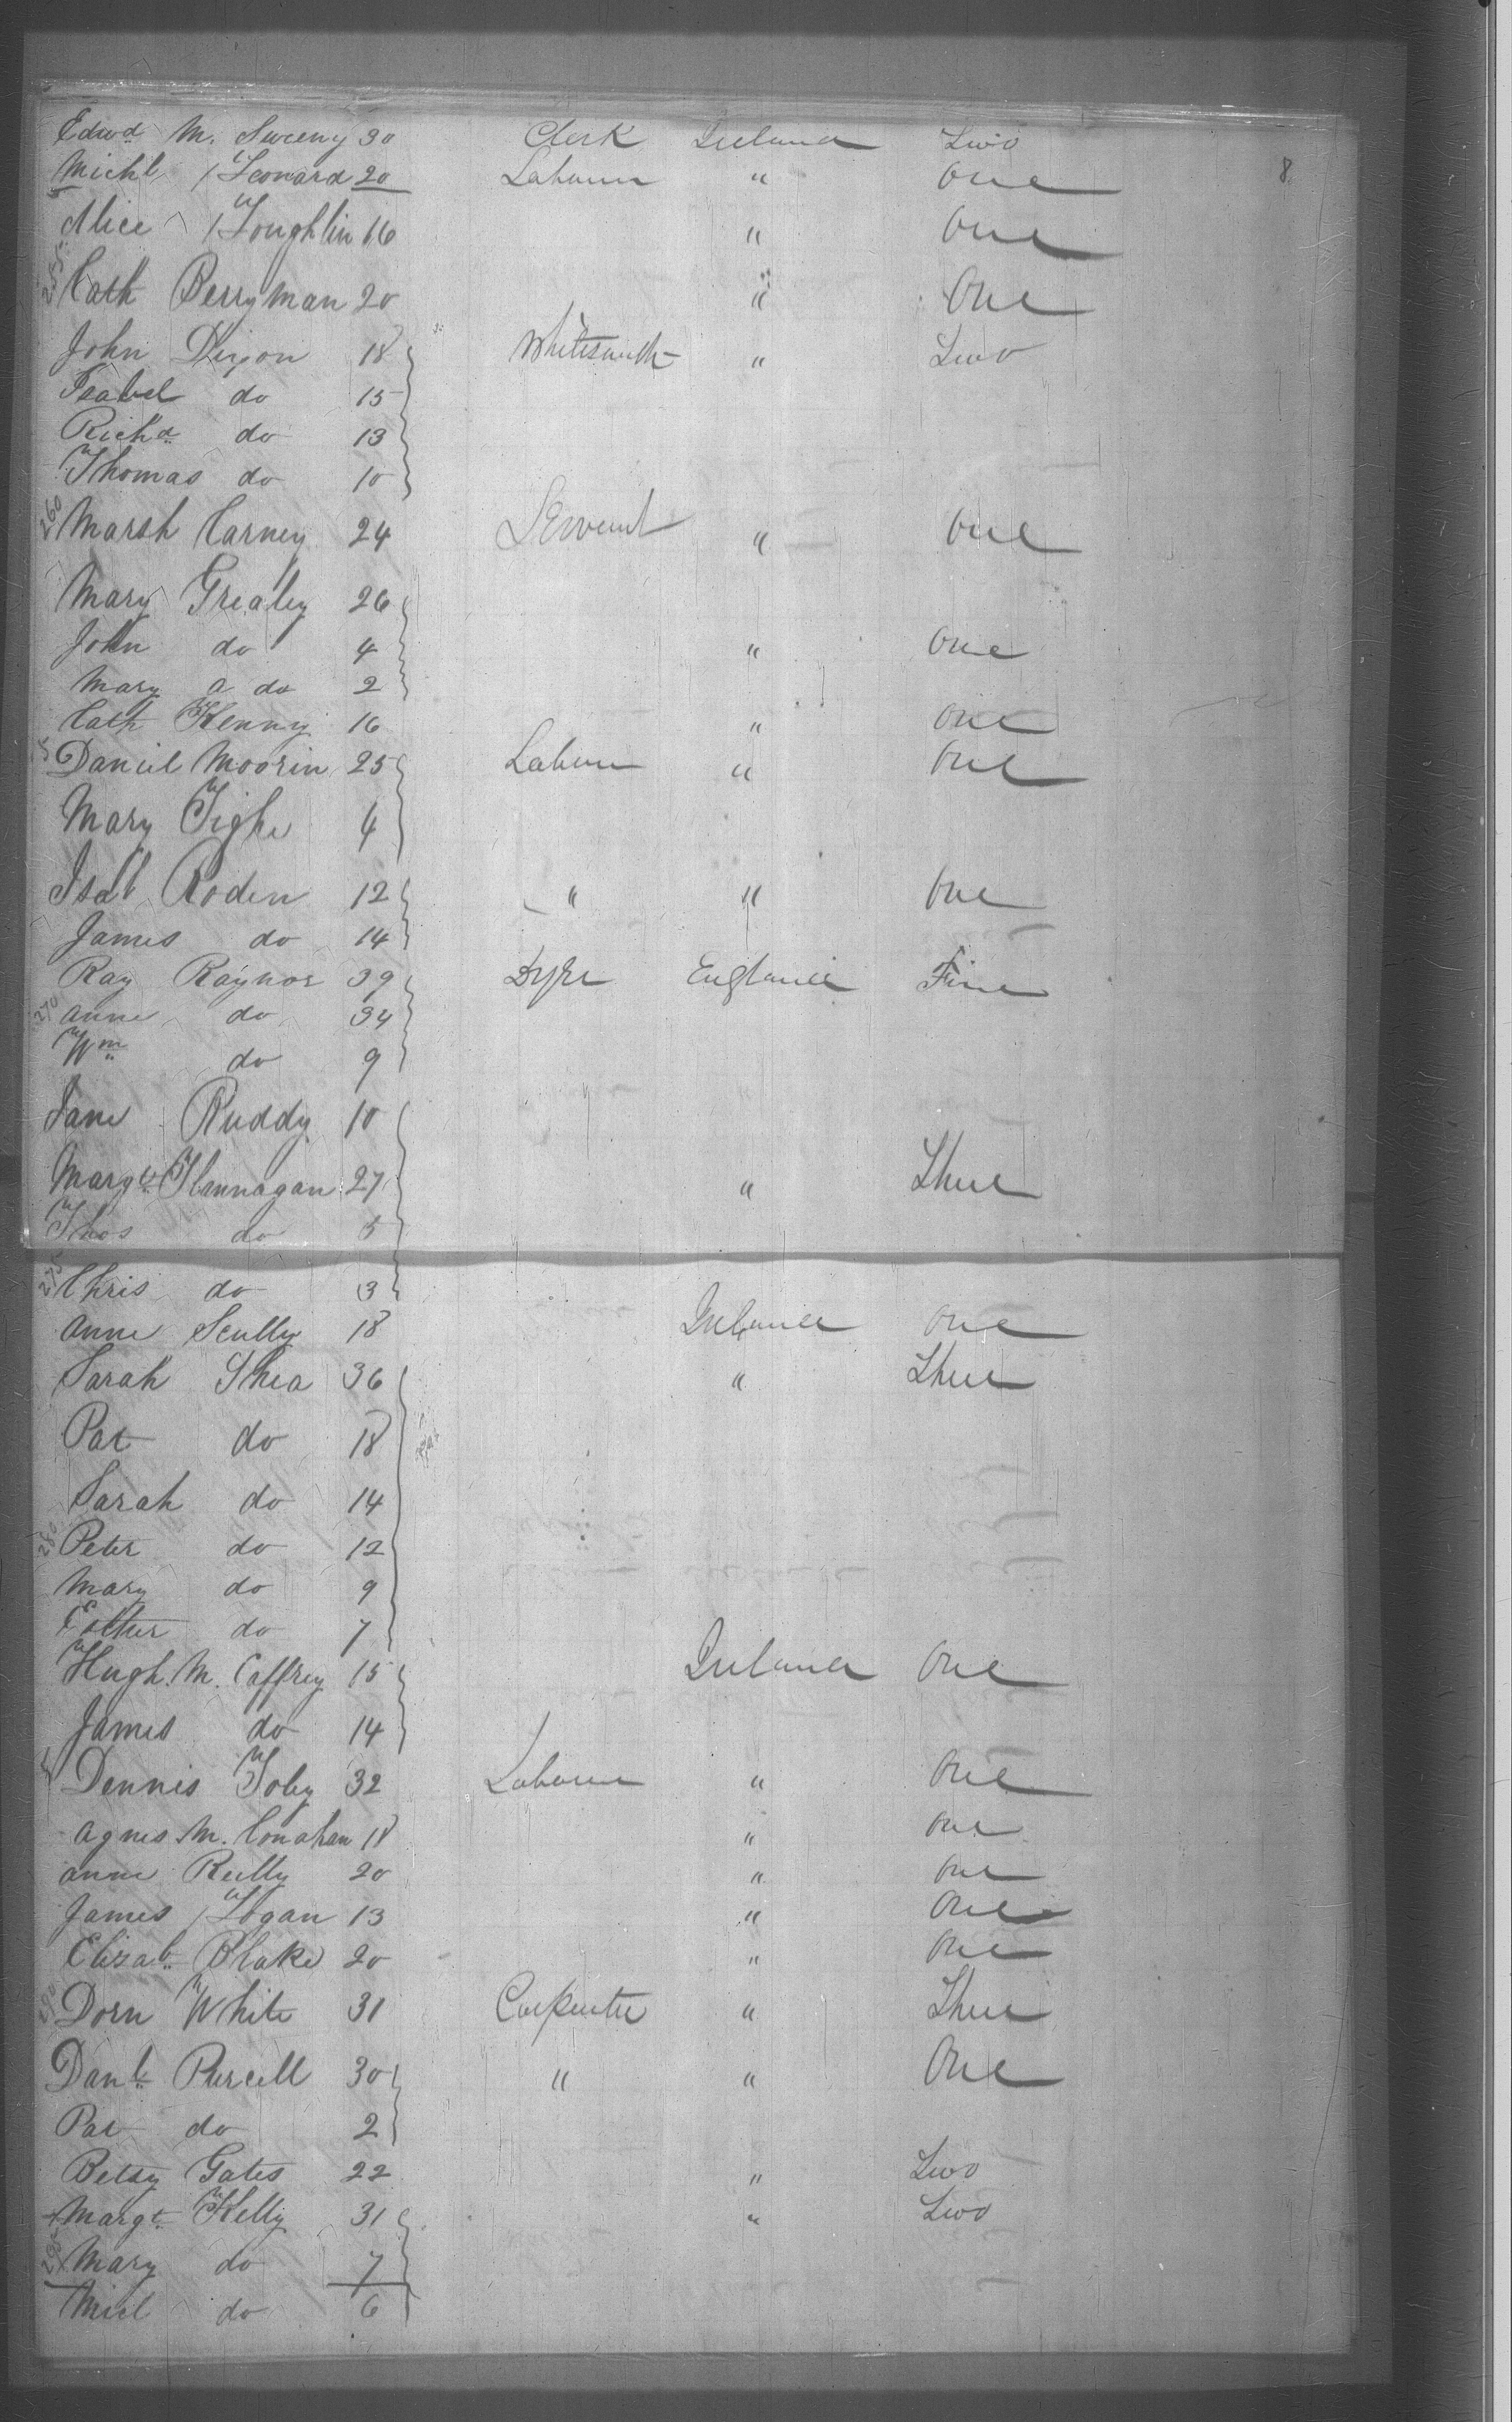 Edwd M. Sweeny 30 Clerk Ireland Two
Michl Leonard 20 Labourer " One 8
Alice Loughlin 16 " One
255 Cath Berryman 20 " One
John Dixon 18 Whitesmith " Two
Isabel do 15
Richd do 13
Thomas do 10
260 Marsh Carney 24 Servant " One
Mary Grealey 26
John do 4 " One
Mary a do 2
Cath Kenny 16 " One
5 Daniel Moorin 25 Labour " One
Mary Tighe 4
Isab Roden 12 " " One
James do 14
Ray Raynor 39 Dyer England Five
270 Anne do 34
Wm do 9
Jane Ruddy 10
Margt Flannagan 27 " Three
Thos do 5
275 Chris do 3
Anne Scully 18 Ireland One
Sarah Shea 36 " Three
Pat do 18
Sarah do 14
280 Peter do 12
Mary do 9
Esther do 7
Hugh M. Caffrey 15 Ireland One
James do 14
5 Dennis Toby 32 Labourer " One
Agnes M. Conahan 18 " One
Anne Reilly 20 " One
James Logan 13 " One
Elizab Blake 20 " One
290 Dorn White 31 Carpenter " Three
Danl Purcell 30 " " One
Pat do 2
Betsy Gates 22 " Two
Margt Kelly 31 " Two
295 Mary do 7
Micl do 6